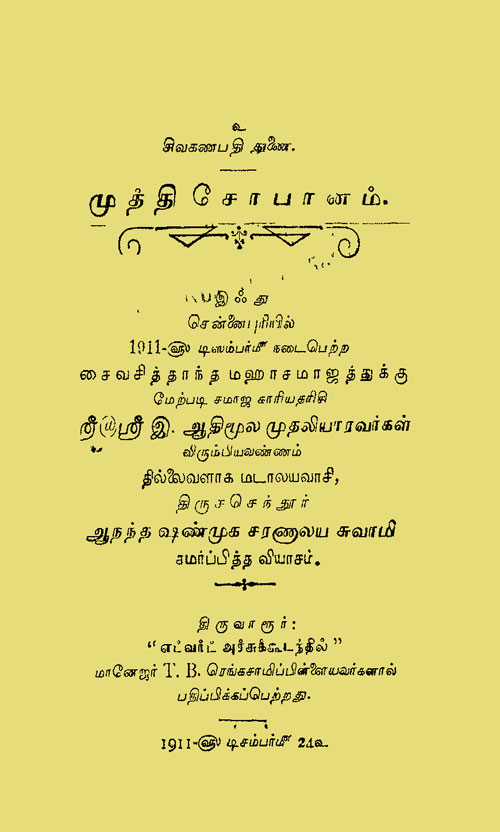 உ
சிவகணபதி துணை.
முத்தி சோபானம்.
இஃது
சென்னைபுரியில்
1911-௵ டிஸம்பர்௴ நடைபெற்ற
சைவசித்தாந்த மஹாசமாஜத்துக்கு
மேற்படி சமாஜ காரியதரிசி
ஸ்ரீ இ. ஆதிமூல முதலியாரவர்கள்
விரும்பியவண்ணம்
தில்லைவளாக மடாலயவாசி,
திருசசெந்தூர்
ஆநந்த ஷண்முக சரணாலய சுவாமி
சமர்ப்பித்த வியாசம்.
திருவாரூர்:
“எட்வர்ட் அச்சுக்கூடத்தில்”
மானேஜர் T. B. ரெங்கசாமிப்பிள்ளையவர்களால்
பதிப்பிக்கப்பெற்றது.
1911-௵ டிசம்பர்௴